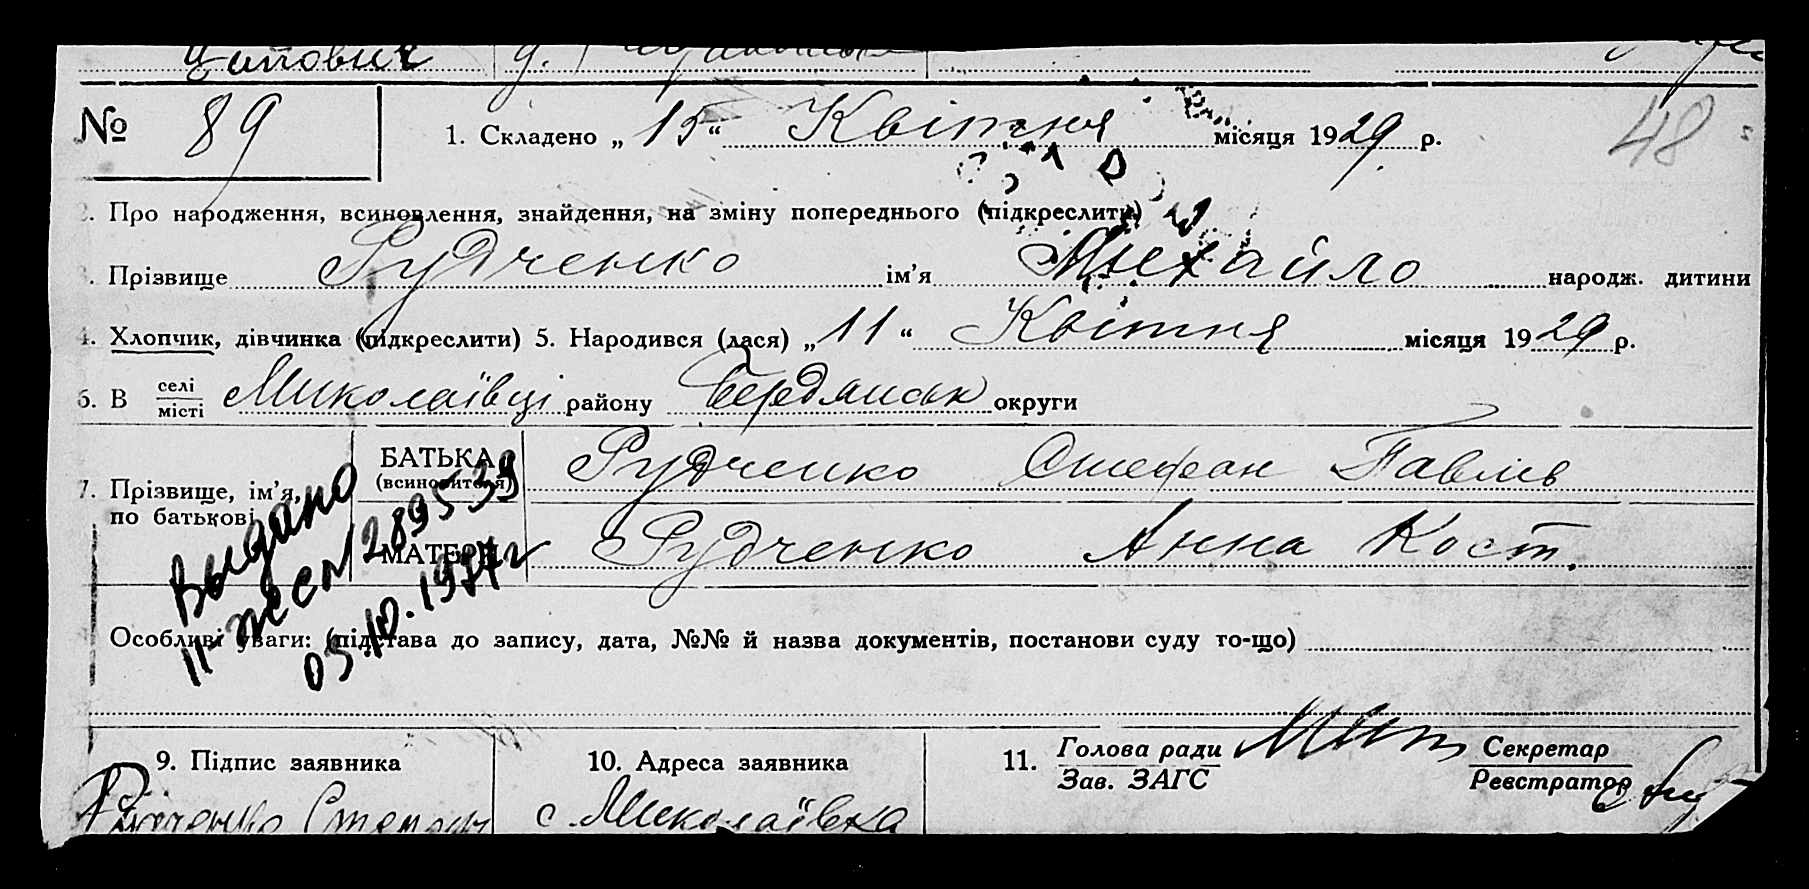 № 89
1. Складено „15“ Квітня місяця 1929 р.
48
2. Про народження, всиновлення, знайдення, на зміну попереднього (підкреслити)
3. Прізвище Рудченко ім’я Михайло народж. дитини
4. Хлопчик, дівчинка (підкреслити) 5. Народився (лася) „11“ Квітня місяця 1929 р.
6. В селі
місті Миколаївці району Бердянськ округи
7. Прізвище, ім’я, по батькові
БАТЬКА (всиновителя) Рудченко Стефан Павлів
МАТЕРИ Рудченко Анна Кост.
Выдано
II-ЖС № 2895539
05.10.1977 г
Особливі уваги: (підстава до запису, дата, №№ й назва документів, постанови суду то-що)
9. Підпис заявника
Рудченко Степан
10. Адреса заявника
с Миколаївка
11. Голова ради
Зав. ЗАГС
Секретар
Реєстратор